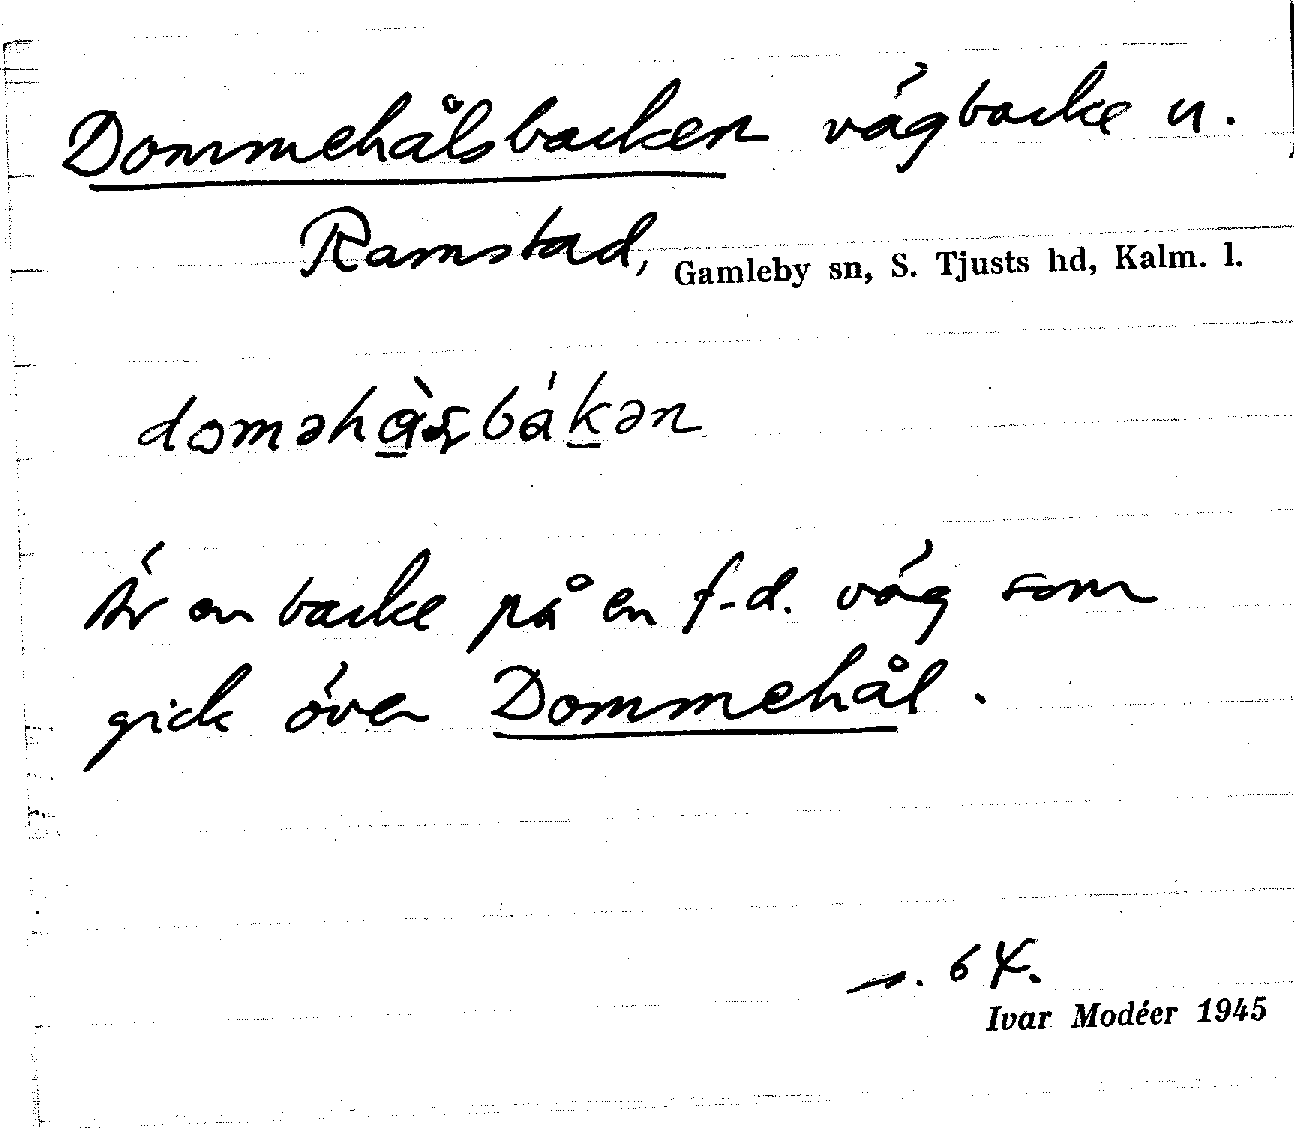 Dommehålsbacken vägbacke u.
Ramstad, Gamleby sn, S. Tjusts hd, Kalm. l.
Är en backe på en f.d. väg som
gick över Dommehål.
s. 64.
Ivar Modéer 1945